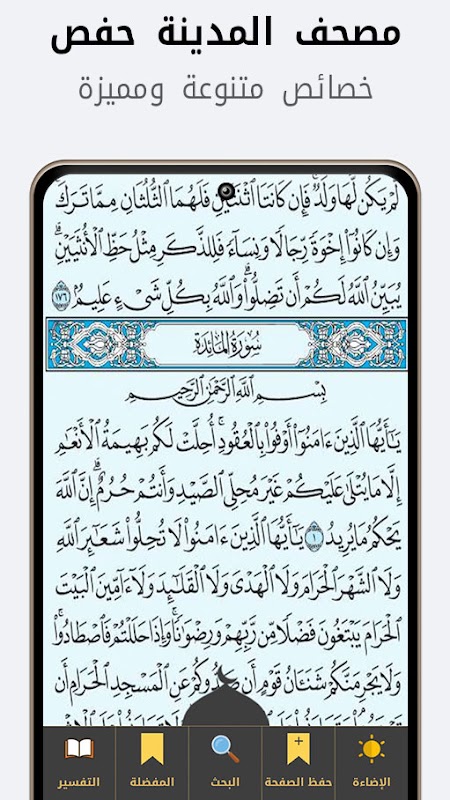 مصحف المدينة حفص
خصائص متنوعة ومميزة
لَمْ يَكُن لَّهَا وَلَدٌ فَإِن كَانَتَا ٱثْنَتَيْنِ فَلَهُمَا ٱلثُّلُثَانِ مِمَّا تَرَكَ
وَإِن كَانُوٓا۟ إِخْوَةً رِّجَالًا وَنِسَآءً فَلِلذَّكَرِ مِثْلُ حَظِّ ٱلْأُنثَيَيْنِ
يُبَيِّنُ ٱللَّهُ لَكُمْ أَن تَضِلُّوا۟ وَٱللَّهُ بِكُلِّ شَىْءٍ عَلِيمٌۢ ١٧٦
سُورَةُ المَائِدَةِ
بِسْمِ ٱللَّهِ ٱلرَّحْمَٰنِ ٱلرَّحِيمِ
يَٰٓأَيُّهَا ٱلَّذِينَ ءَامَنُوٓا۟ أَوْفُوا۟ بِٱلْعُقُودِ أُحِلَّتْ لَكُم بَهِيمَةُ ٱلْأَنْعَٰمِ
إِلَّا مَا يُتْلَىٰ عَلَيْكُمْ غَيْرَ مُحِلِّى ٱلصَّيْدِ وَأَنتُمْ حُرُمٌ إِنَّ ٱللَّهَ
يَحْكُمُ مَا يُرِيدُ ١ يَٰٓأَيُّهَا ٱلَّذِينَ ءَامَنُوا۟ لَا تُحِلُّوا۟ شَعَٰٓئِرَ ٱللَّهِ
وَلَا ٱلشَّهْرَ ٱلْحَرَامَ وَلَا ٱلْهَدْىَ وَلَا ٱلْقَلَٰٓئِدَ وَلَآ ءَآمِّينَ ٱلْبَيْتَ
ٱلْحَرَامَ يَبْتَغُونَ فَضْلًا مِّن رَّبِّهِمْ وَرِضْوَٰنًا وَإِذَا حَلَلْتُمْ فَٱصْطَادُوا۟
وَلَا يَجْرِمَنَّكُمْ شَنَـَٔانُ قَوْمٍ أَن صَدُّوكُمْ عَنِ ٱلْمَسْجِدِ ٱلْحَرَامِ أَن
الإضاءة
حفظ الصفحة
البحث
المفضلة
التفسير